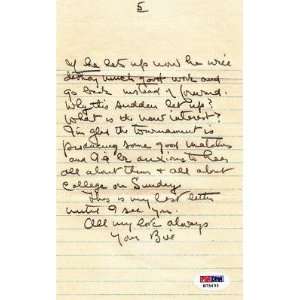 5
If he lets up now he will
destroy much good work and
go back instead of forward.
Why this sudden let up?
What is the new interest?
I'm glad the tournament is
producing some good matches
and I'll be anxious to hear
all about them & all about
College on Sunday
This is my last letter
until I see you.
All my love always
Your Bill
PSA DNA